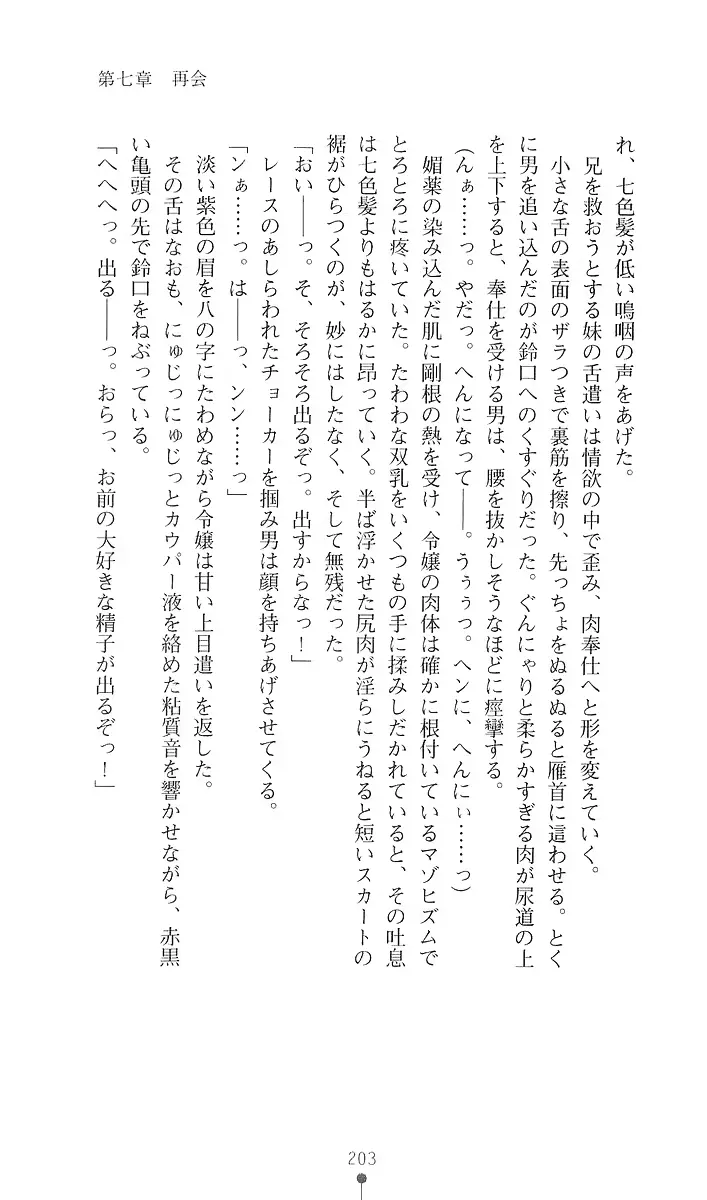 第七章　再会
れ、七色髪が低い嗚咽の声をあげた。
兄を救おうとする妹の舌遣いは情欲の中で歪み、肉奉仕へと形を変えていく。
小さな舌の表面のザラつきで裏筋を擦り、先っちょをぬるぬると雁首に這わせる。とく
に男を追い込んだのが鈴口へのくすぐりだった。ぐんにゃりと柔らかすぎる肉が尿道の上
を上下すると、奉仕を受ける男は、腰を抜かしそうなほどに痙攣する。
（んぁ……っ。やだっ。へんになって――。うぅぅっ。ヘンに、へんにぃ……っ）
媚薬の染み込んだ肌に剛根の熱を受け、令嬢の肉体は確かに根付いているマゾヒズムで
とろとろに疼いていた。たわわな双乳をいくつもの手に揉みしだかれていると、その吐息
は七色髪よりもはるかに昂っていく。半ば浮かせた尻肉が淫らにうねると短いスカートの
裾がひらつくのが、妙にはしたなく、そして無残だった。
「おい――っ。そ、そろそろ出るぞっ。出すからなっ！」
レースのあしらわれたチョーカーを掴み男は顔を持ちあげさせてくる。
「ンぁ……っ。は――っ、ンン……っ」
淡い紫色の眉を八の字にたわめながら令嬢は甘い上目遣いを返した。
その舌はなおも、にゅじっにゅじっとカウパー液を絡めた粘質音を響かせながら、赤黒
い亀頭の先で鈴口をねぶっている。
「へへへっ。出る――っ。おらっ、お前の大好きな精子が出るぞっ！」
203